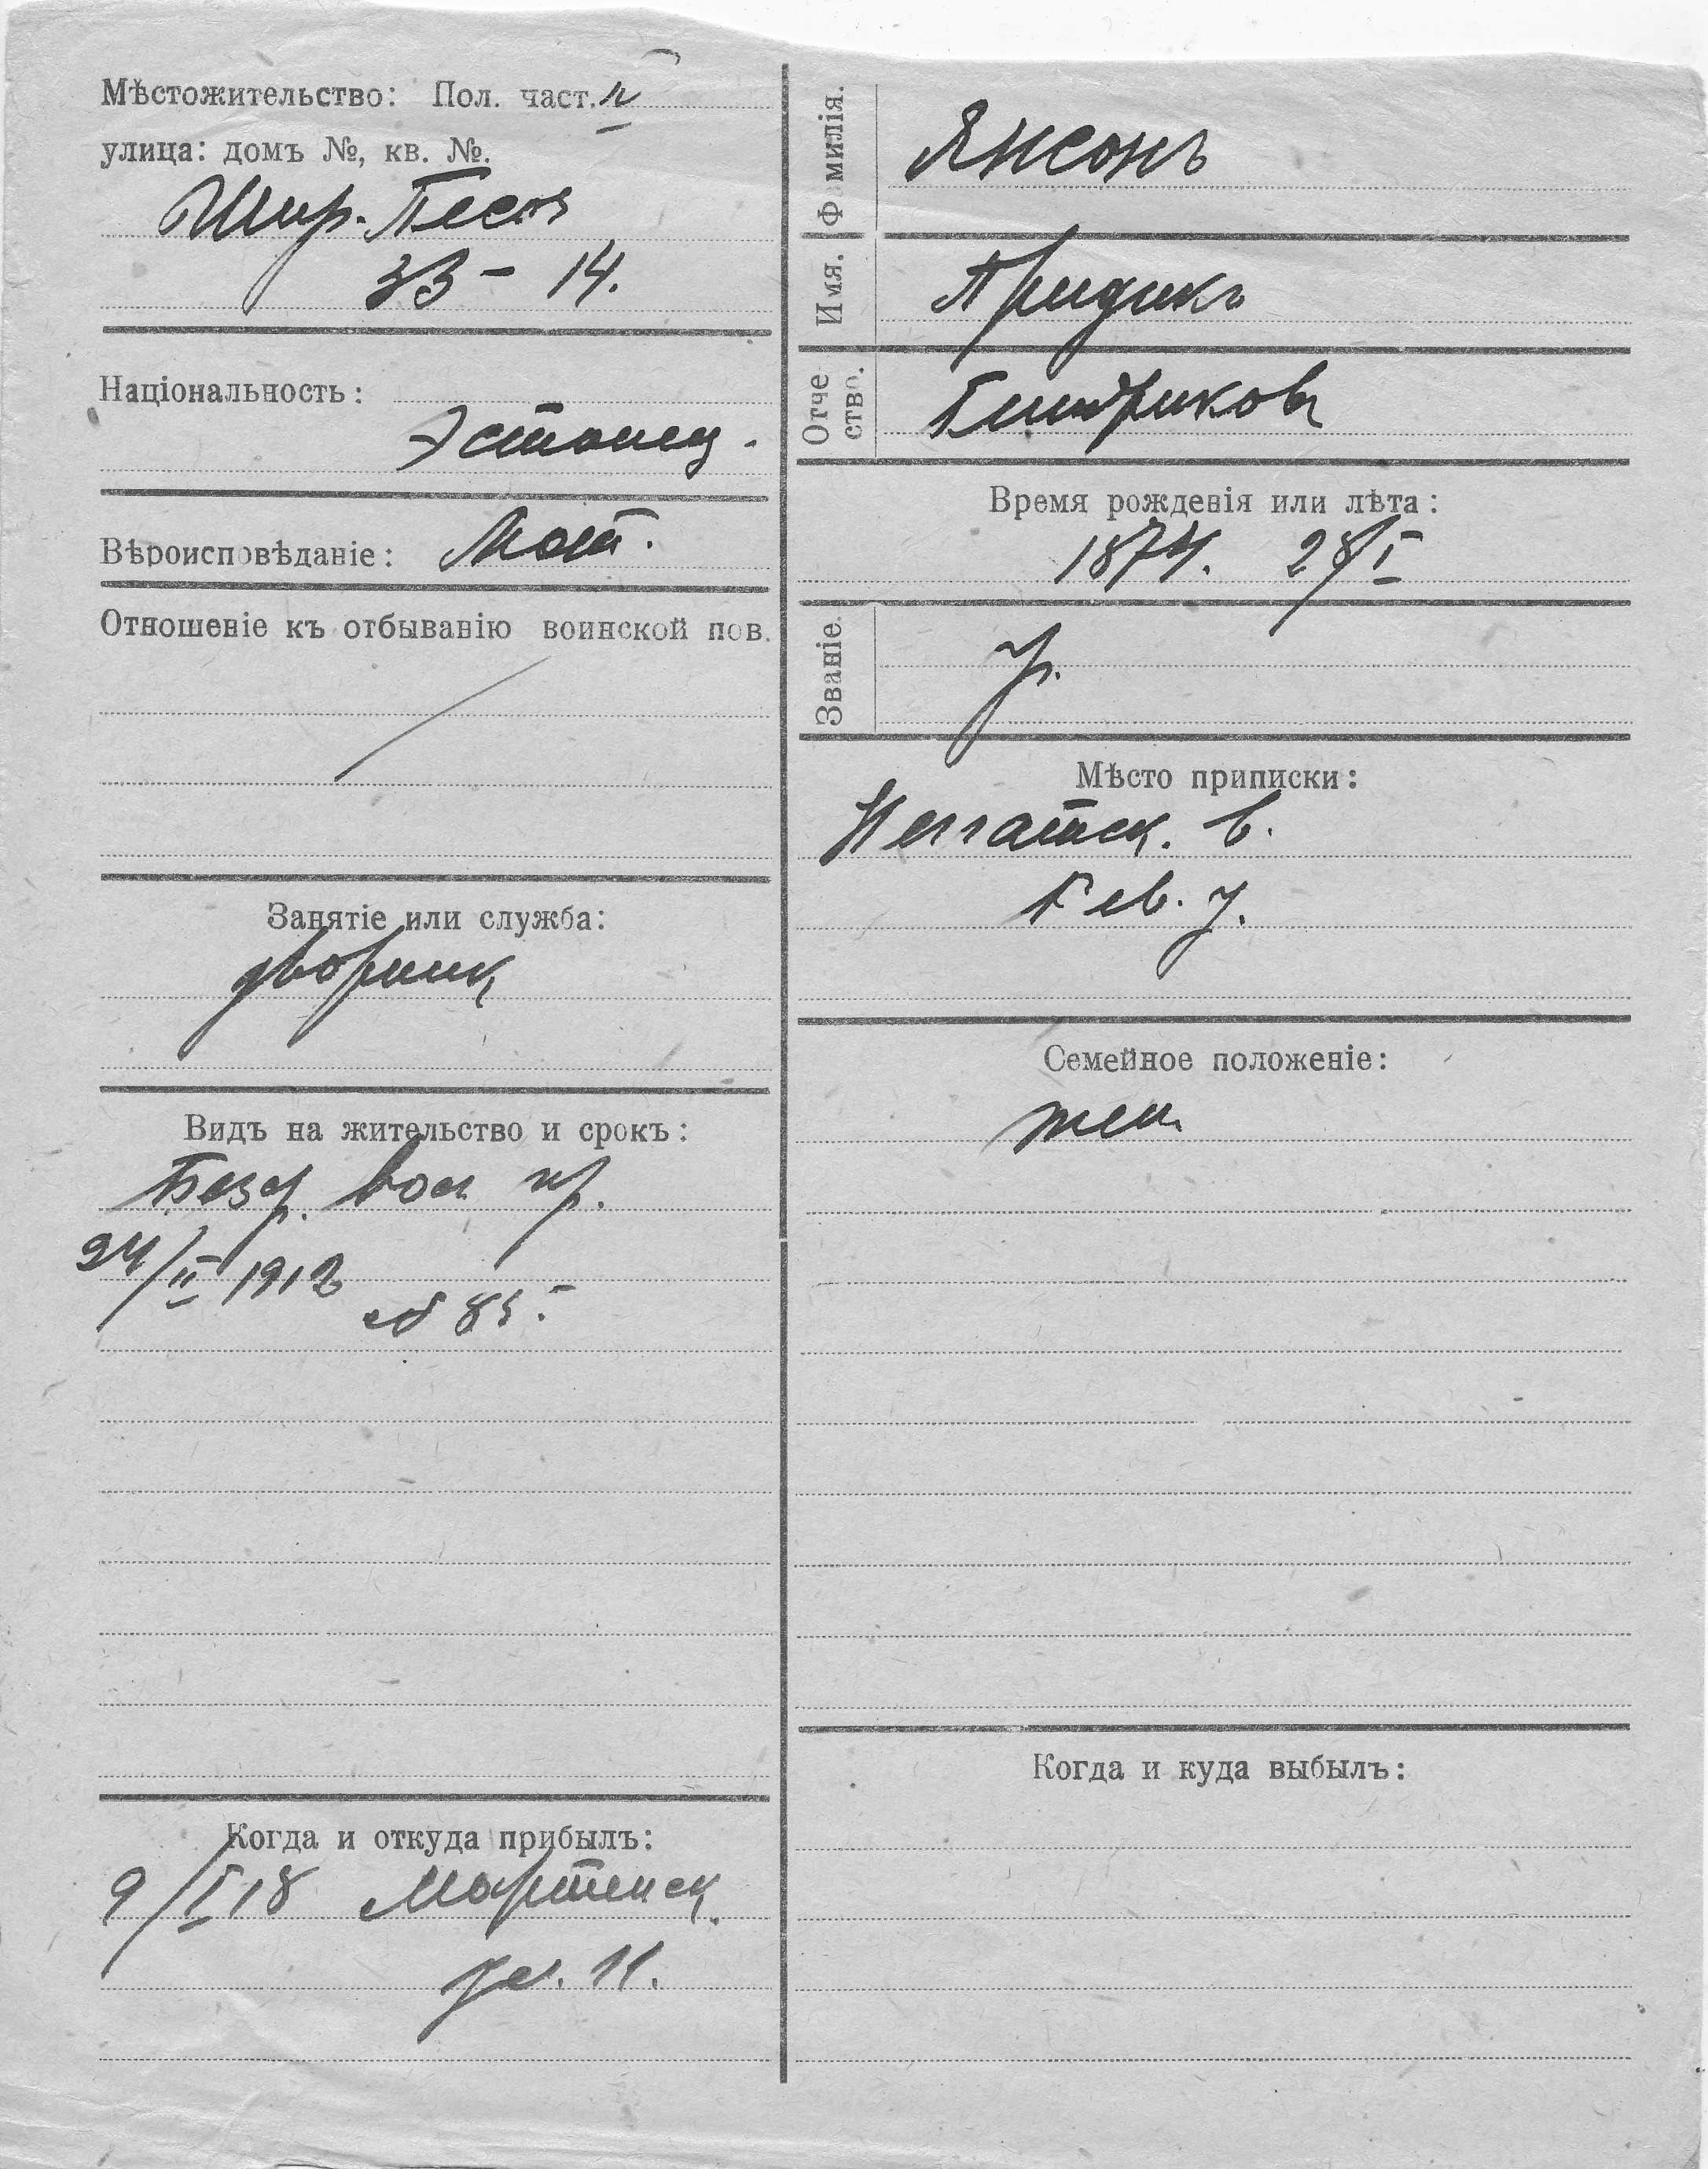 Мѣстожительство: Пол. част.
улица: домъ №, кв. №.
Шир. Песоч
33 – 14.
Національность:
Эстонец.
Вѣроисповѣданіе: Лют.
Отношеніе къ отбыванію воинской пов.
Занятіе или служба:
дворник
Видъ на жительство и срокъ:
Безср. вол. пр.
24/II 1912
№ 85.
Когда и откуда прибылъ:
9/I 18 Мартенск.
ул. 11.
Фамилія. Янсонъ
Имя. Придикъ
Отчество. Гиндриковъ
Время рожденія или лѣта:
1874. 28/I
Званіе.
Мѣсто приписки:
в.
Рев. у.
Семейное положеніе:
жен.
Когда и куда выбылъ: